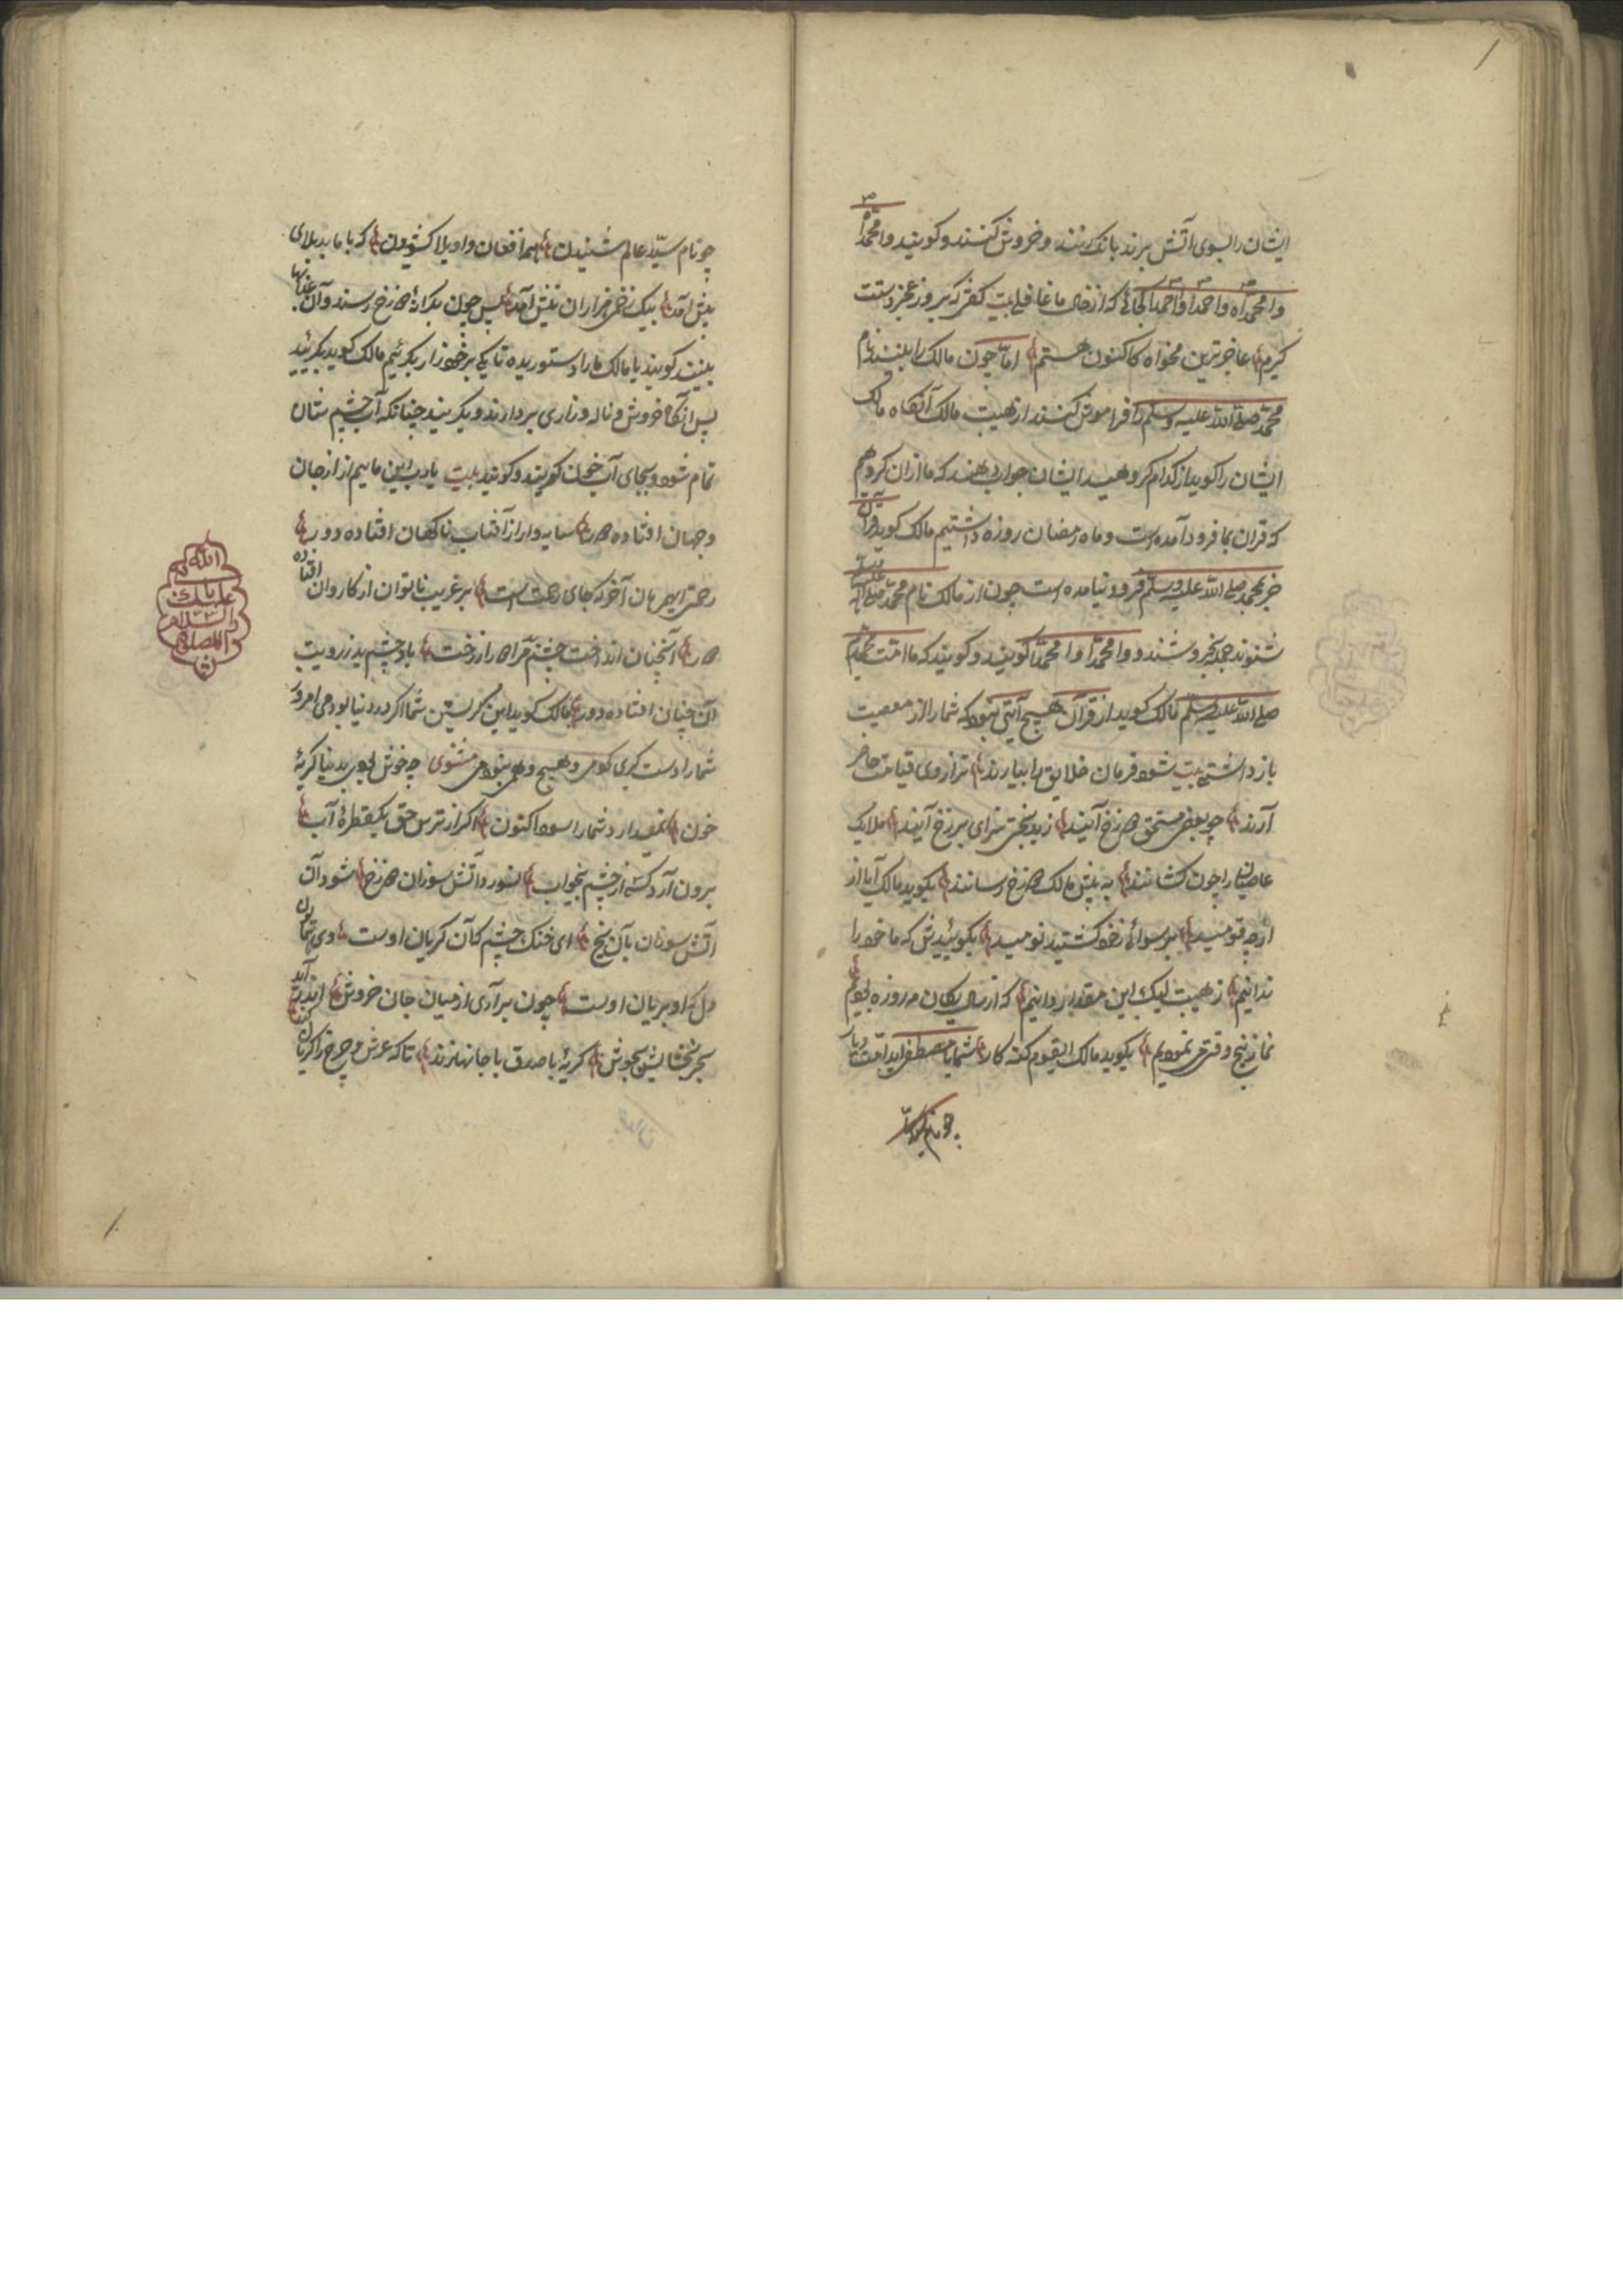 ایشان را بسوی آتش برند بانک کنند و خروش کنند و کویند وا محمداه
وا محمداه وا احمدا وا احمدا کجائی که از حال ما غافلی بیت کفتی که بروز عجز دستت
کیرم عاجزترین مخواه کاکنون هستم اما چون مالک را بینند نام
محمد صلی الله علیه وسلم را فراموش کنند از هیبت مالک آنکاه مالک
ایشان را کوید از کدام کروهید ایشان جواب دهند که ما ازان کروهیم
که قران بما فرود آمده است و ماه رمضان روزه داشتیم مالک کوید قرآن
جز بمحمد صلی الله علیه وسلم فرود نیامده است چون از مالک نام محمد صلی الله علیه
شنوند جمله بخروشند و وا محمدا وا محمدا کویند و کویند که ما امت محمدیم
صلی الله علیه وسلم مالک کوید از قرآن هیچ آیتی نبود که شما را از معصیت
باز داشتی بیت شود فرمان خلایق را بیارند ترازوی قیامت حاضر
آرند چو بعضی مستحق دوزخ آیند زبدبختی سزای برزخ آیند ملایک
عاصیان را چون کشانند به پیش مالک دوزخ رسانند بکوید مالک آیا از
از چه قومید برسوائی زخود کشتید نومید بکویندش که ما خود را
ندانیم ز هیبت لیک این مقدار دانیم که اندر سال یکان مه روزه بودیم
نماز پنج وقتی نمودیم بکوید مالک ای قوم کنه کار شما با مصطفی اید امت
چو نام سید
چو نام سید عالم شنیدن همه افغان و اویلا کشیدن که با ما بد بلای
پیش آمد بیک زخمی هزاران نیش آمد پس چون بکناره دوزخ رسند و آن عذابها
بینند کویند یا مالک ما را دستوری ده تا یکی بر خود زار بکرییم مالک کوید بکریید
پس آنکاه خروش و ناله و زاری بردارند و بکریند چنانکه آب چشم شان
تمام شود و بجای آب خون کریند و کویند بیت یارب این ماییم از جان
و جهان افتاده دور سایه وار از آفتاب ناکهان افتاده دور
رحمتی ای همرهان آخر که جای رحمت است بر غریب ناتوان از کاروان افتاده
دور آنچنان انداخت چشمم مرا دور از رخت باد چشم بد ز رویت
آن چنان افتاده دور مالک کوید این کریستن شما اکر در دنیا بودی امروز
شما را دست کیری کردی و هیچ وهمی نبودی مثنوی چه خوش بودی بدنیا کریه
خون ندارد شما را سود اکنون اکر از ترس حق یکقطره آب
برون آرد کسی از چشم بیخواب نسوزد آتش سوزان دوزخ شود آن
آتش سوزان بآن یخ ای خنک چشمی کآن کریان اوست وی همایون
دل که او بریان اوست چون برآری از میان جان خروش اندر آید
بحر بخشایش بجوش کریه با صدق با جانها زند تا که عرش و چرخ را کریان کند